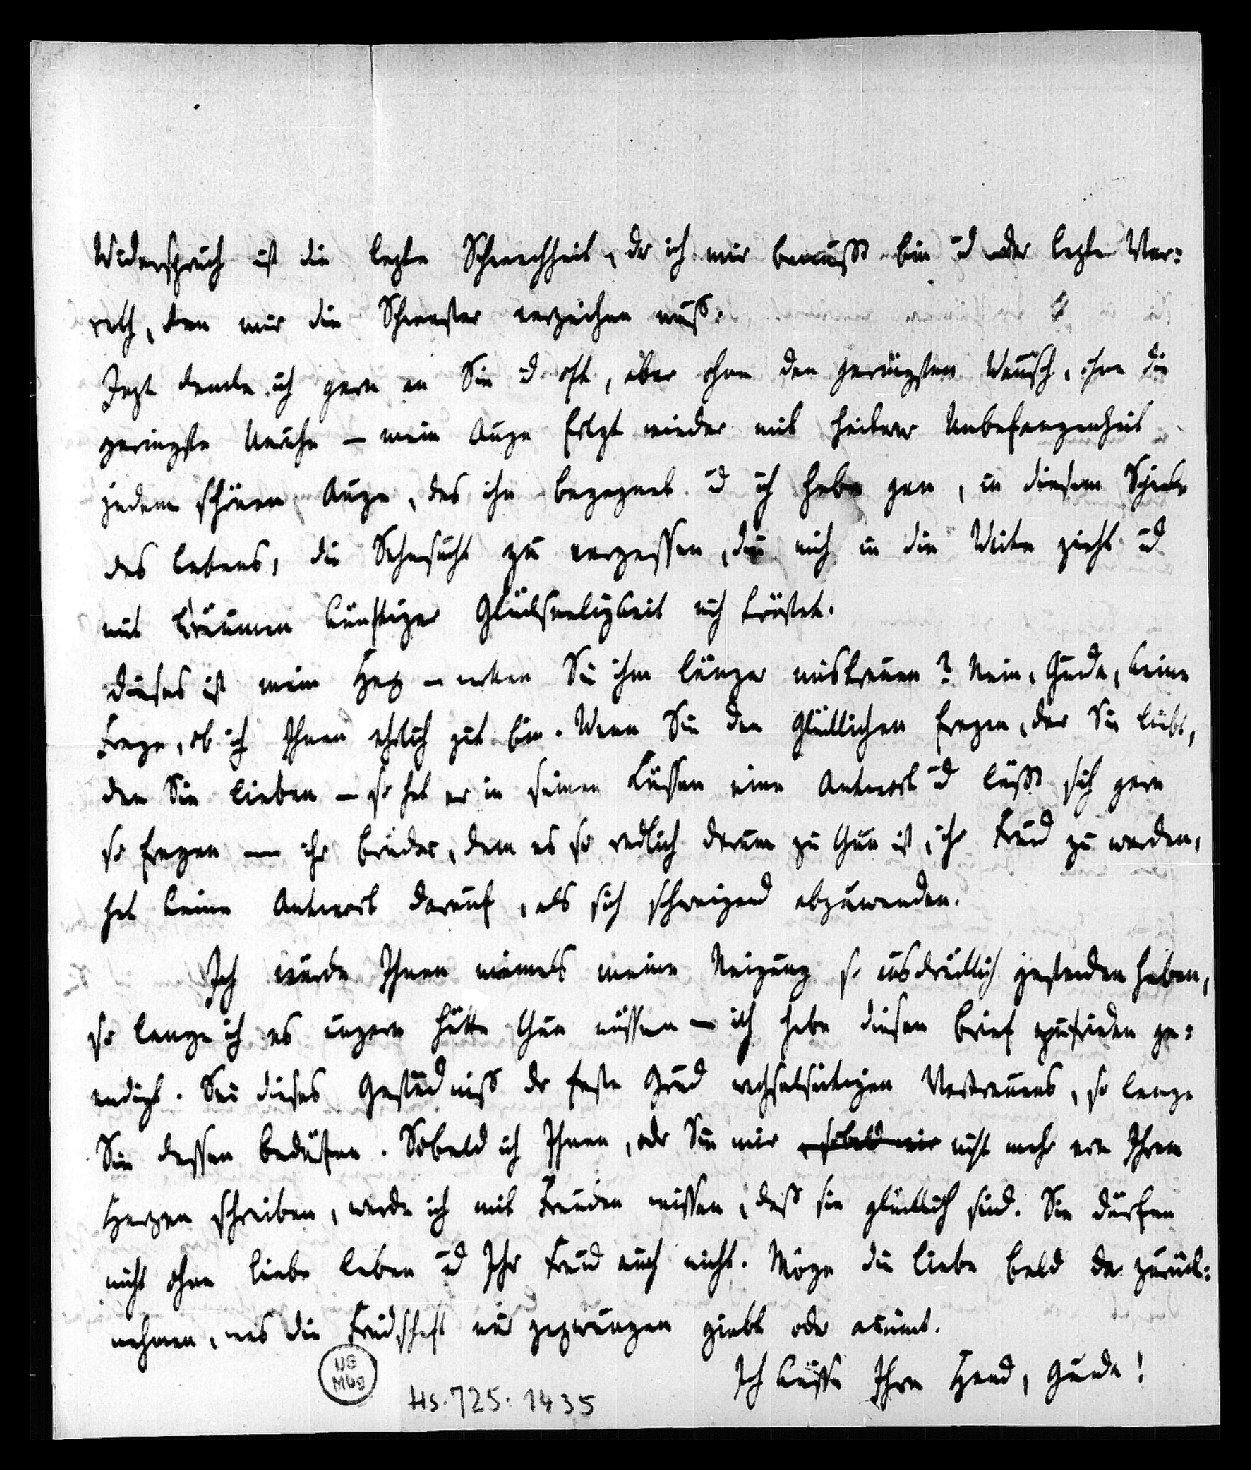 Widerspruch ist die lezte Schwachheit, der ich mir bewußt bin ūd der lezte Ver:
rath, den mir die Schwester verzeihen muß.
Jezt denke ich gern an Sie ūd oft, aber ohne den geringsten Wunsch, ohne die
geringste Unruhe – mein Auge folgt wieder mit heiterer Unbefangenheit
jedem schönen Auge, das ihm begegnet ūd ich habe gern, in diesem Spiele
des Lebens, die Sehnsucht zu vergessen, die mich in die Weite zieht ūd
mit Träumen künftiger Glückseeligkeit mich tröstet.
Dieses ist mein Herz – wollen Sie ihm länger mistrauen? Nein, Gunda, keine
Frage, ob ich Ihnen ehrlich gut bin. Wenn Sie den Glücklichen fragen, der Sie liebt,
den Sie lieben – so hat er in seinen Küssen eine Antwort ūd läßt sich gern
so fragen – ihr Bruder, dem es so redlich darum zu thun ist, ihr Freūd zu werden,
hat keine Antwort darauf, als sich schweigend abzuwenden.
Ich würde Ihnen niemals meine Neigung so ausdrücklich gestanden haben,
so lange ich es ungern hätte thun müssen – ich habe diesen Brief zufrieden ge:
endigt. Sei dieses Geständniß der feste Grūd wechselseitigen Vertrauens, so lange
Sie dessen bedürfen. Sobald ich Ihnen, oder Sie mir nicht mehr von Ihrem
Herzen schreiben, werde ich mit Freuden wissen, daß sie glücklich sind. Sie dürfen
nicht ohne Liebe leben ūd Ihr Freūd auch nicht. Möge die Liebe bald da zurück:
nehmen, was die Freūdschaft nur gezwungen giebt oder nimt.
Ich küsse Ihre Hand, Gunda!
UB
Mbg
Hs. 725. 1435